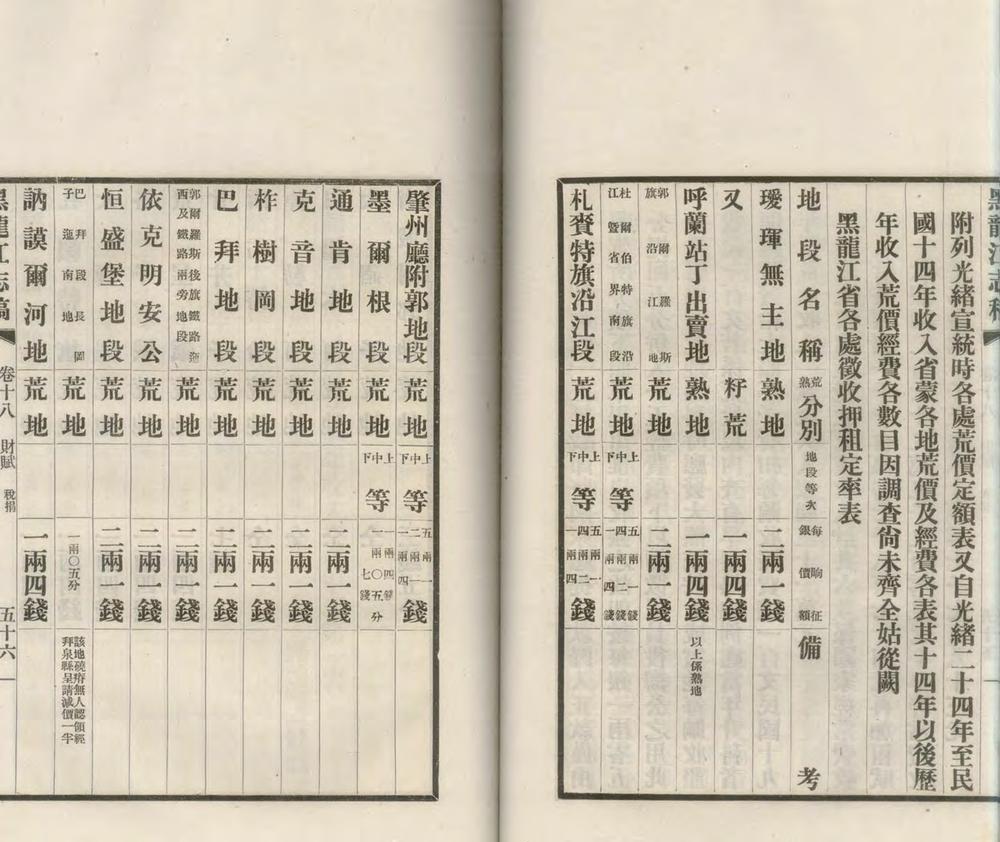 黑龍江志稿
附列光緒宣統時各處荒價定額表又自光緒二十四年至民
國十四年收入省蒙各地荒價及經費各表其十四年以後歷
年收入荒價經費各數目因調查尙未齊全姑從闕
黑龍江省各處徵收押租定率表
地段名稱 荒熟分別 地段等次 每晌征銀價額 備考
璦琿無主地 熟地 二兩一錢
又 籽荒 一兩四錢
呼蘭站丁出賣地 熟地 一兩四錢 以上係熟地
郭爾羅斯旗沿江地 荒地 二兩一錢
杜爾伯特旗沿江暨省界南段 荒地 上中下等 五兩一錢 四兩二錢 一兩四錢
札賚特旗沿江段 荒地 上中下等 五兩一錢 四兩二錢 一兩四錢
肇州廳附郭地段 荒地 上中下等 五兩一錢 二兩一錢 一兩四錢
墨爾根段 荒地 上中下等 一兩四錢 一兩〇五分 七錢
通肯地段 荒地 二兩一錢
克音地段 荒地 二兩一錢
柞樹岡段 荒地 二兩一錢
巴拜地段 荒地 二兩一錢
郭爾羅斯後旗鐵路迤西及鐵路兩旁地段 荒地 二兩一錢
依克明安公 荒地 二兩一錢
恒盛堡地段 荒地 二兩一錢
巴拜段長岡子迤南地 荒地 一兩〇五分 該地磽瘠無人認領經拜泉縣呈請減價一半
訥謨爾河地 荒地 一兩四錢
黑龍江志稿 卷十八 財賦 稅捐 五十六